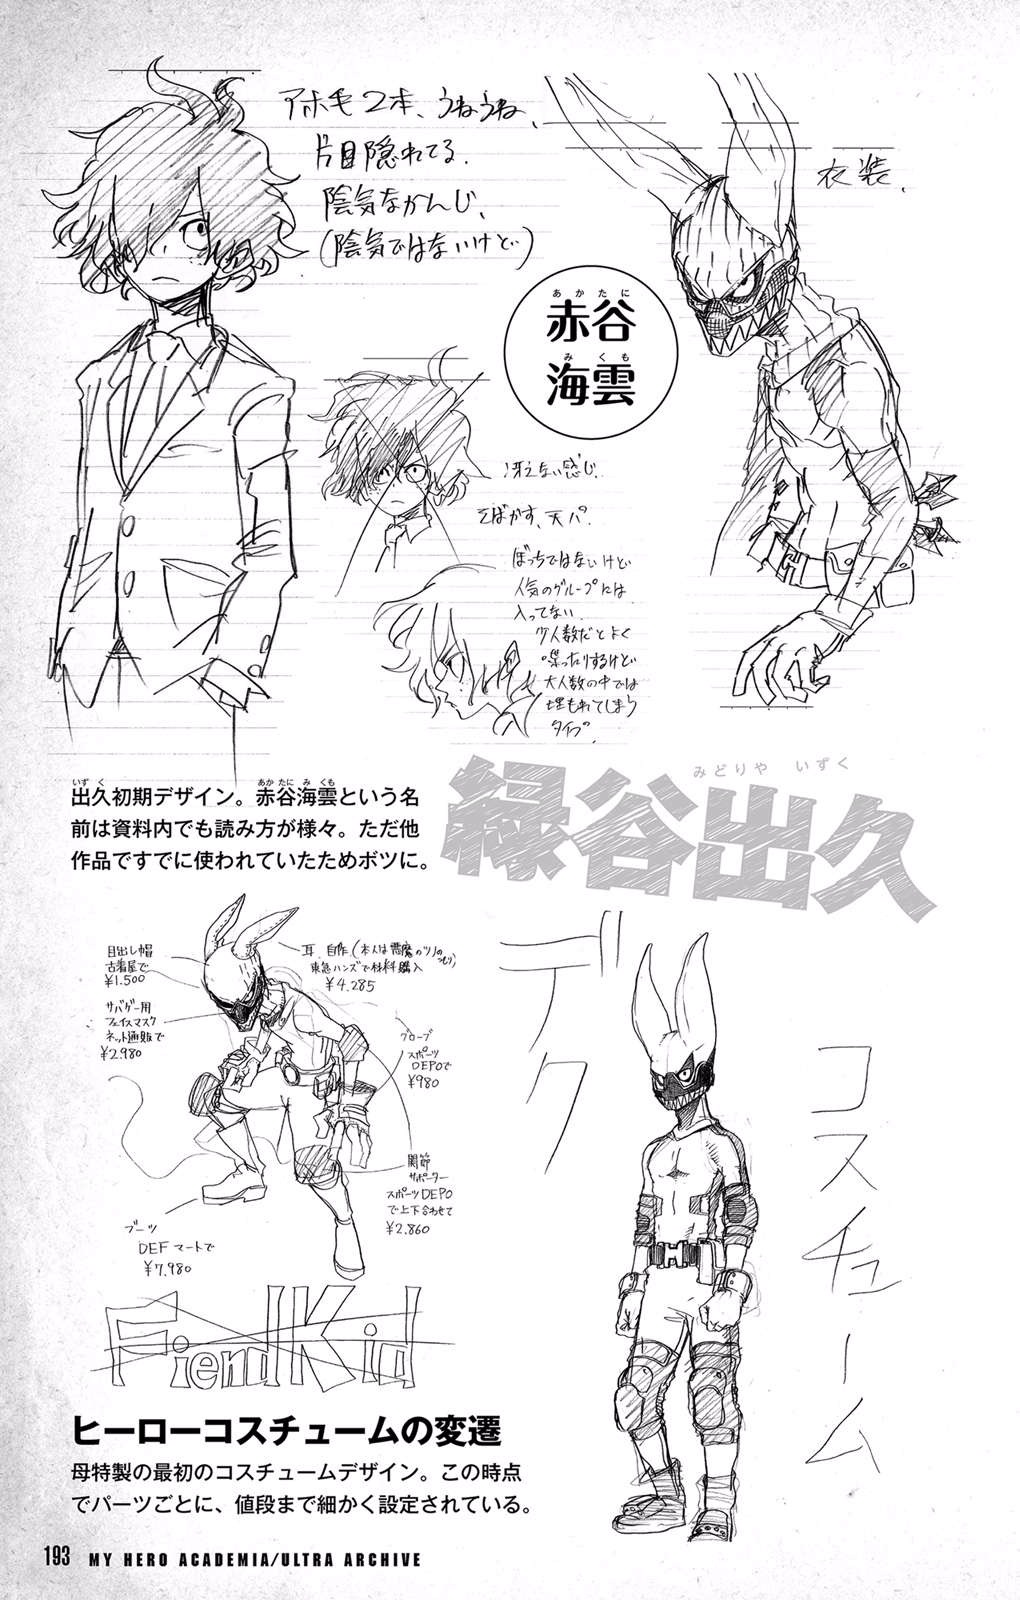 アホ毛2本、うねうね、
片目隠れてる.
陰気なかんじ、
(陰気ではないけど)
衣装.
あかたに
赤谷
みくも
海雲
冴えない感じ.
そばかす、天パ.
ぼっちではないけど
人気のグループには
入ってない.
少人数だとよく
喋ったりするけど
大人数の中では
埋もれてしまう
タイプ.
いずく あかたに みくも
出久初期デザイン。赤谷海雲という名
前は資料内でも読み方が様々。ただ他
作品ですでに使われていたためボツに。
みどりや いずく
緑谷出久
目出し帽
古着屋で
¥1.500
サバゲー用
フェイスマスク
ネット通販で
¥2980
耳.自作(本人は悪魔のツノのつもり)
東急ハンズで材料購入
¥4.285
グローブ
スポーツ
DEPOで
¥980
関節
サポーター
スポーツDEPO
で上下合わせて
¥2.860
ブーツ
DEFマートで
¥7.980
Fiend Kid
デク
コスチューム
ヒーローコスチュームの変遷
母特製の最初のコスチュームデザイン。この時点
でパーツごとに、値段まで細かく設定されている。
193 MY HERO ACADEMIA/ULTRA ARCHIVE